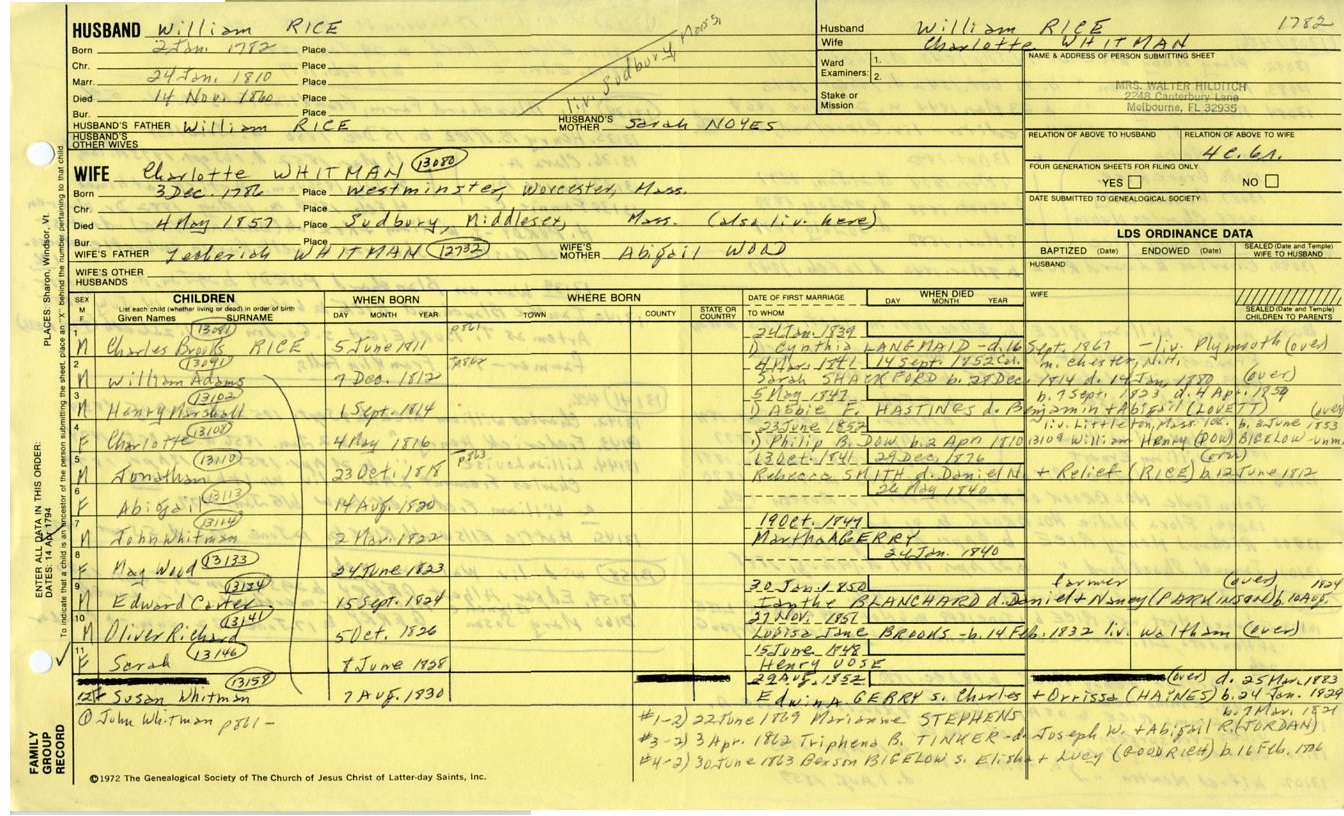 HUSBAND William RICE
Born 2 Jan. 1782 Place
Chr. Place
Marr. 24 Jan. 1810 Place
Died 14 Nov. 1860 Place
Bur. Place
liv. Sudbury, Mass.
HUSBAND'S FATHER William RICE HUSBAND'S MOTHER Sarah NOYES
HUSBAND'S OTHER WIVES
Husband William RICE 1782
Wife Charlotte WHITMAN
Ward Examiners: 1. 2.
Stake or Mission
NAME & ADDRESS OF PERSON SUBMITTING SHEET
MRS. WALTER HILDITCH
2248 Canterbury Lane
Melbourne, FL 32935
RELATION OF ABOVE TO HUSBAND RELATION OF ABOVE TO WIFE
4 c. 6r.
FOUR GENERATION SHEETS FOR FILING ONLY
YES NO
DATE SUBMITTED TO GENEALOGICAL SOCIETY
WIFE Charlotte WHITMAN 13080
Born 3 Dec. 1786 Place Westminster, Worcester, Mass.
Chr. Place
Died 4 May 1857 Place Sudbury, Middlesex, Mass. (also liv. here)
Bur. Place
WIFE'S FATHER Zecheriah WHITMAN 12732 WIFE'S MOTHER Abigail WOOD
WIFE'S OTHER HUSBANDS
LDS ORDINANCE DATA
BAPTIZED (Date) ENDOWED (Date) SEALED (Date and Temple) WIFE TO HUSBAND
HUSBAND
WIFE
SEALED (Date and Temple) CHILDREN TO PARENTS
SEX M F CHILDREN List each child (whether living or dead) in order of birth Given Names SURNAME WHEN BORN DAY MONTH YEAR WHERE BORN TOWN COUNTY STATE OR COUNTRY DATE OF FIRST MARRIAGE TO WHOM WHEN DIED DAY MONTH YEAR
1 M Charles Brooks RICE 13081 5 June 1811 p861 24 Jan. 1839
1) Cynthia LANGMAID - d. 16 Sept. 1867 - liv. Plymouth (over)
2 M William Adams 13091 7 Dec. 1812 p862 4 Mar. 1841 14 Sept. 1852 Cal. m. Chester, N.H.
Sarah SHACKFORD b. 28 Dec. 1814 d. 14 Jan. 1880 (over)
3 M Henry Marshall 13102 6 Sept. 1814 5 May 1847 b. 7 Sept. 1823 d. 4 Apr. 1859
1) Abbie F. HASTINGS d. Benjamin + Abigail (LOVETT) (over)
4 F Charlotte 13108 4 May 1816 23 June 1852 liv. Littleton, Mass. b. 2 June 1853
1) Philip B. DOW b. 2 Apr 1810 13109 William Henry (DOW) BIGELOW - unm.
5 M Jonathan 13110 23 Oct. 1818 p863 13 Oct. 1841 29 Dec. 1876 (over)
Rebecca SMITH d. Daniel N. + Relief (RICE) b. 12 June 1812
6 F Abigail 13113 14 Aug. 1820 26 May 1840
7 M John Whitman 13114 2 Mar. 1822 19 Oct. 1847
Martha A GERRY
8 F May Wood 13133 24 June 1823 24 Jan. 1840
9 M Edward Carter 13134 15 Sept. 1824 30 Jan. 1850 farmer (over) 1824
Ianthe BLANCHARD d. Daniel + Nancy (PARKINSON) b. 10 Aug.
10 M Oliver Richard 13141 5 Oct. 1826 27 Nov. 1851
Louisa Jane BROOKS - b. 14 Feb. 1832 liv. Waltham (over)
11 F Sarah 13146 8 June 1828 15 June 1848
Henry VOSE
12 F Susan Whitman 13158 7 Aug. 1830 29 Aug. 1852 (over) d. 25 Mar. 1883
Edwin A. GERRY s. Charles + Orrissa (HAINES) b. 24 Jan. 1829
@ John Whitman p861 -
#1-2) 22 June 1869 Marianne STEPHENS b. 7 Mar. 1821
#3-2) 3 Apr. 1862 Triphena B. TINKER - d. Joseph W. + Abigail R. (JORDAN)
#4-2) 30 June 1863 Benson BIGELOW s. Elisha + Lucy (GOODRICH) b. 16 Feb.
©1972 The Genealogical Society of The Church of Jesus Christ of Latter-day Saints, Inc.
FAMILY GROUP RECORD
ENTER ALL DATA IN THIS ORDER:
DATES: 14 Apr 1794
PLACES: Sharon, Windsor, Vt.
To indicate that a child is an ancestor of the person submitting the sheet, place an "X" behind the number pertaining to that child.